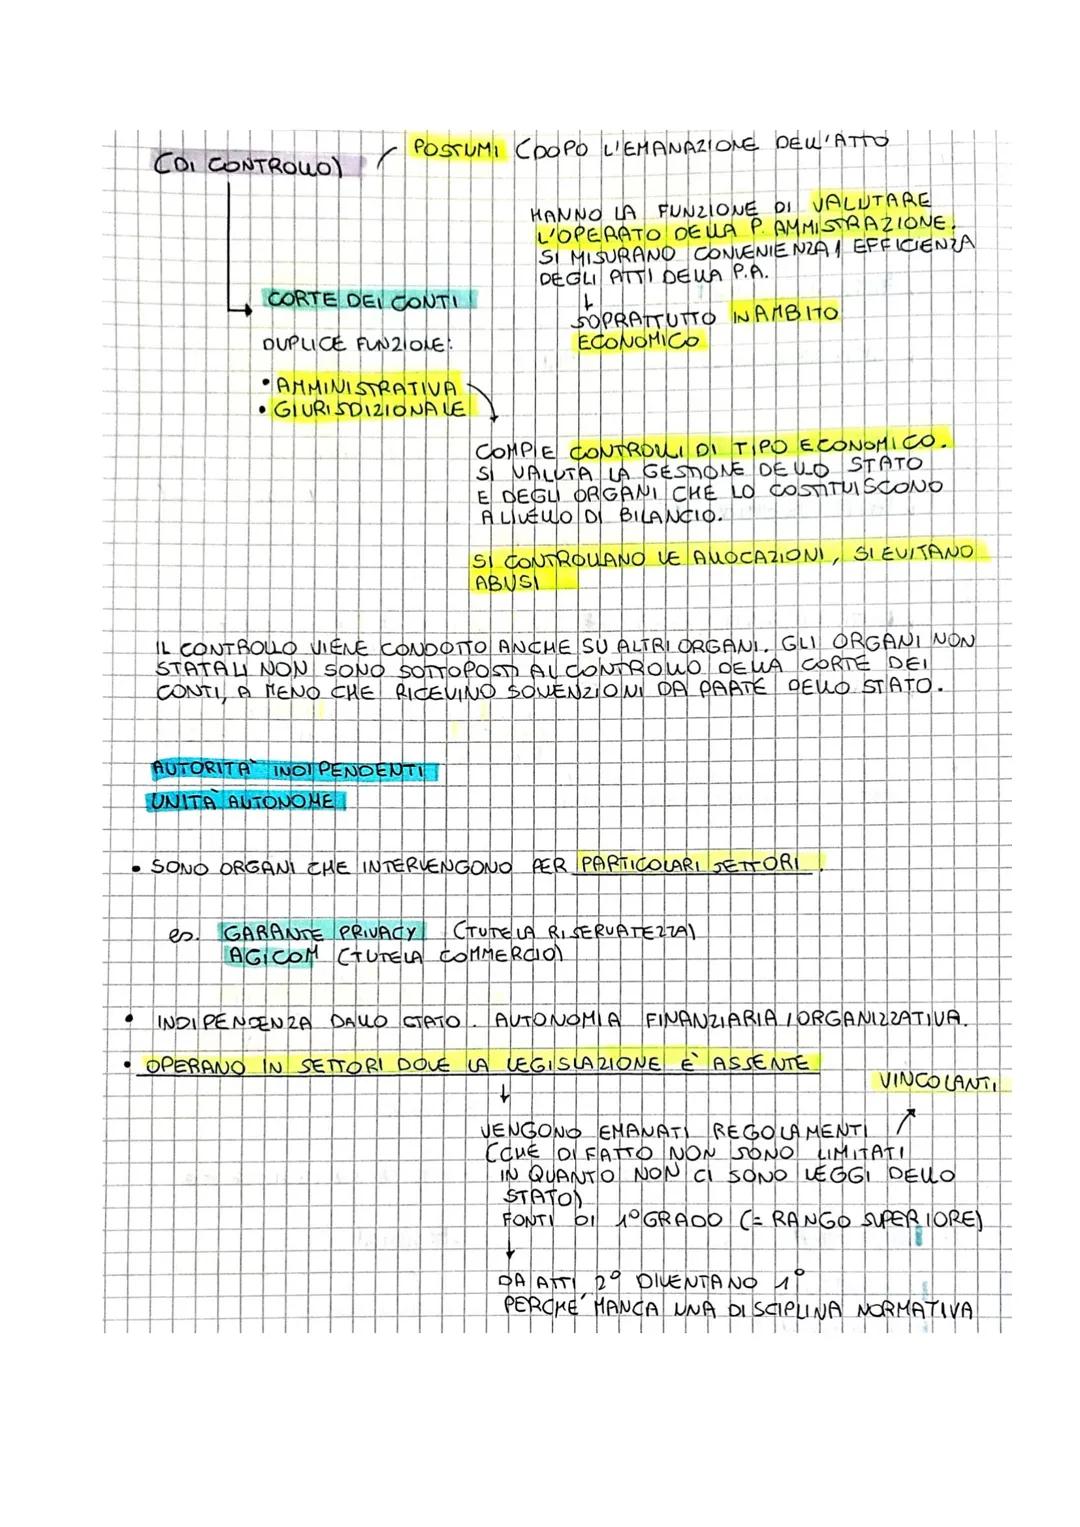 (DI CONTROLLO)
POSTUMI (DOPO L'EMANAZIONE DELL'ATTO
HANNO LA FUNZIONE DI VALUTARE
L'OPERATO DELLA P. AMMISTRAZIONE.
SI MISURANO CONVENIENZA / EFFICIENZA
DEGLI ATTI DELLA P.A.
↓
SOPRATTUTTO IN AMBITO
ECONOMICO
CORTE DEI CONTI
DUPLICE FUNZIONE:
• AMMINISTRATIVA
• GIURISDIZIONALE
COMPIE CONTROLLI DI TIPO ECONOMICO.
SI VALUTA LA GESTIONE DELLO STATO
E DEGLI ORGANI CHE LO COSTITUISCONO
A LIVELLO DI BILANCIO.
SI CONTROLLANO LE ALLOCAZIONI, SI EVITANO
ABUSI
IL CONTROLLO VIENE CONDOTTO ANCHE SU ALTRI ORGANI. GLI ORGANI NON
STATALI NON SONO SOTTOPOSTI AL CONTROLLO DELLA CORTE DEI
CONTI, A MENO CHE RICEVINO SOVENZIONI DA PARTE DELLO STATO.
AUTORITA' INDIPENDENTI
UNITA' AUTONOME
• SONO ORGANI CHE INTERVENGONO PER PARTICOLARI SETTORI.
es. GARANTE PRIVACY (TUTELA RISERVATEZZA)
AGICOM (TUTELA COMMERCIO)
• INDIPENDENZA DALLO STATO. AUTONOMIA FINANZIARIA / ORGANIZZATIVA.
• OPERANO IN SETTORI DOVE LA LEGISLAZIONE E' ASSENTE
VINCOLANTI
↓
VENGONO EMANATI REGOLAMENTI
(CHE DI FATTO NON SONO LIMITATI
IN QUANTO NON CI SONO LEGGI DELLO
STATO)
FONTI DI 1° GRADO (= RANGO SUPERIORE)
↓
DA ATTI 2° DIVENTANO 1°
PERCHE' MANCA UNA DISCIPLINA NORMATIVA